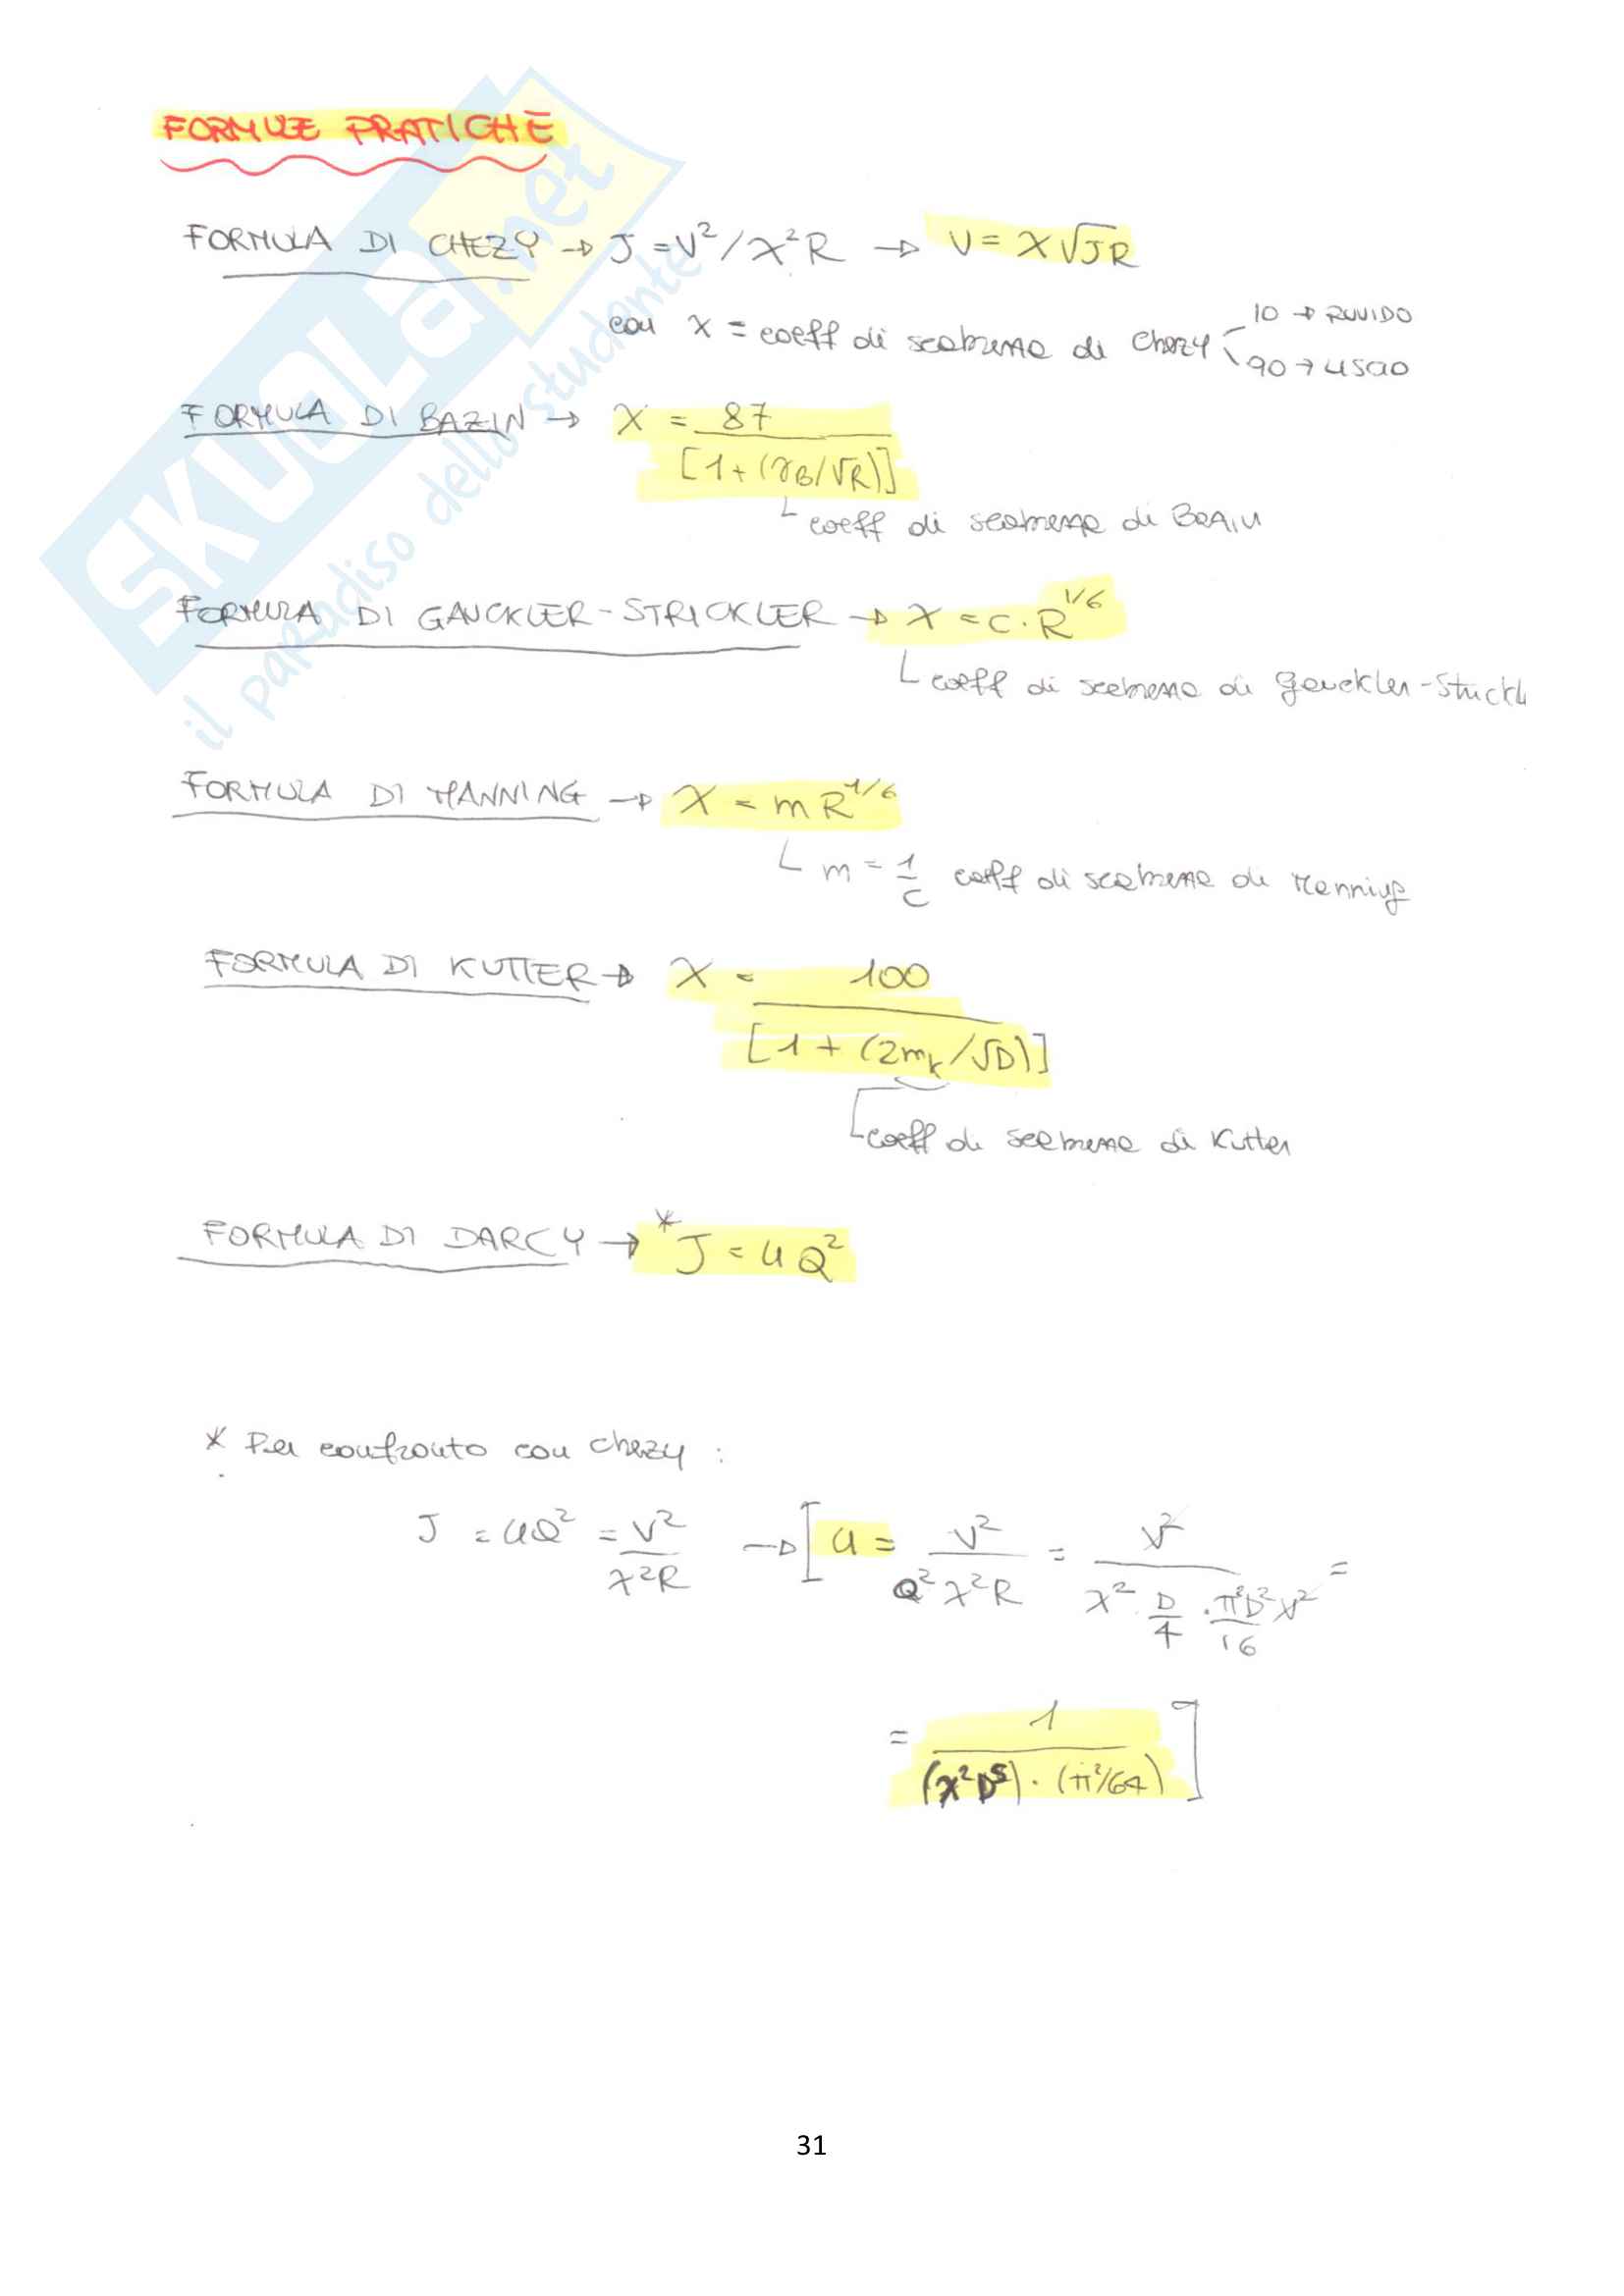 FORMULE PRATICHE
FORMULA DI CHEZY → J = V²/χ²R → V = χ√JR
con χ = coeff di scabrezza di Chezy
10 → RUVIDO
90 → LISCIO
FORMULA DI BAZIN → χ = 87 / [1+(γB/√R)]
coeff di scabrezza di BAZIN
FORMULA DI GAUCKLER-STRICKLER → χ = c · R^1/6
coeff di scabrezza di Gauckler-Strickl
FORMULA DI MANNING → χ = m R^1/6
m = 1/c coeff di scabrezza di Manning
FORMULA DI KUTTER → χ = 100 / [1 + (2mk/√D)]
coeff di scabrezza di Kutter
FORMULA DI DARCY → * J = uQ²
* Per confronto con Chezy :
J = uQ² = V²/χ²R → [ u = V²/Q²χ²R = V²/χ² · D/4 · π²D²V²/16 =
= 1/(χ²D⁵) · (π²/64) ]
31
SKUOLA.net
il paradiso dello studente